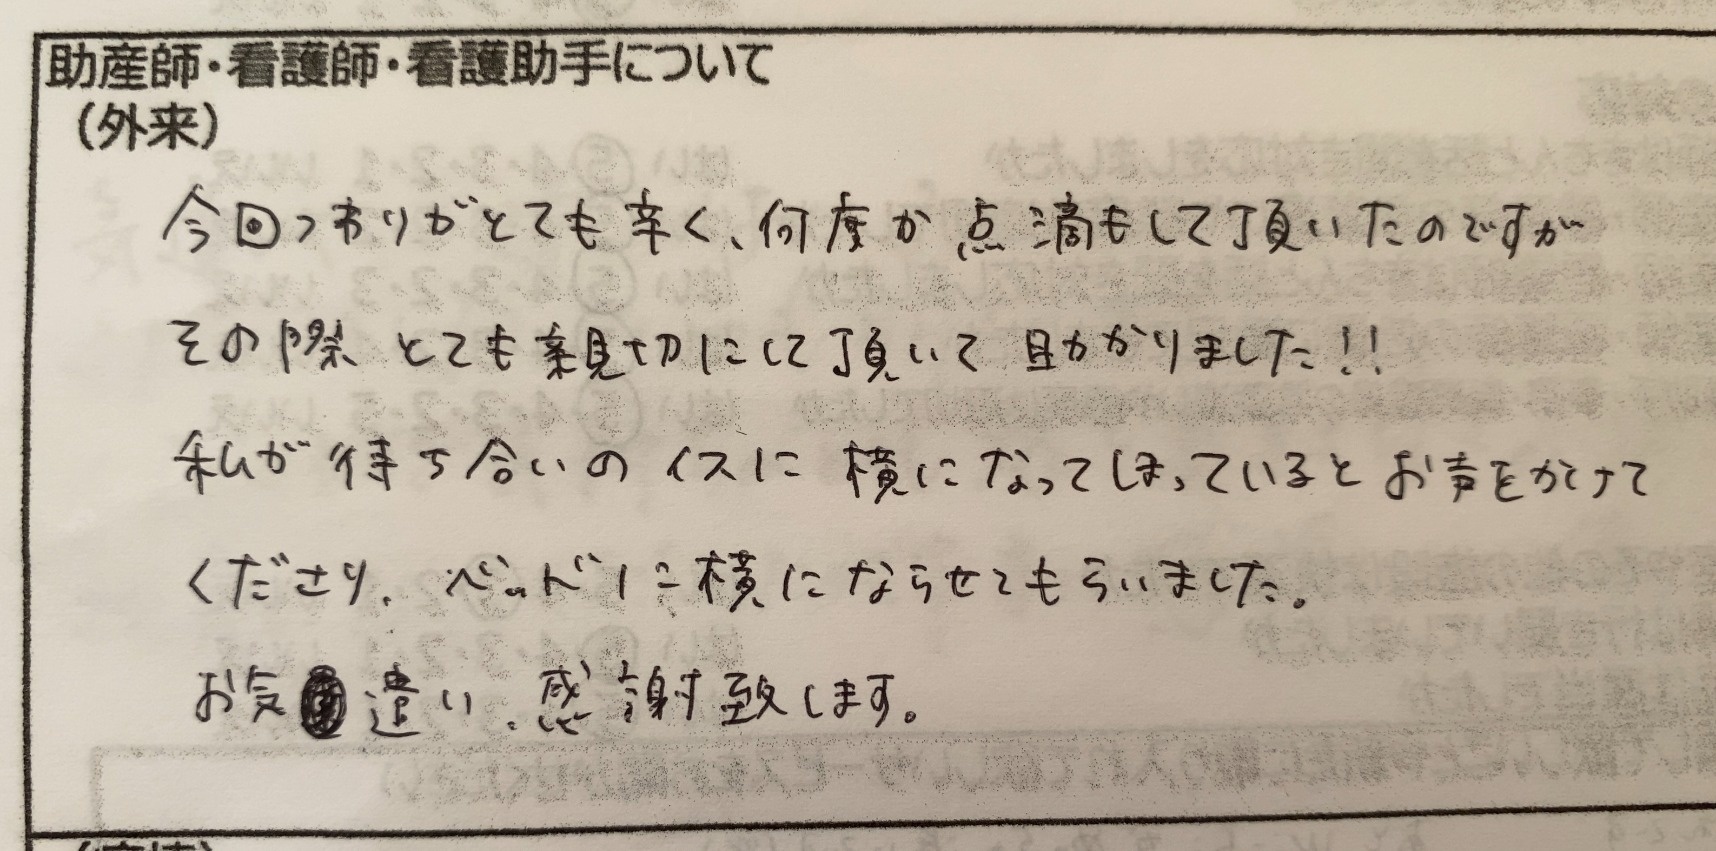 助産師・看護師・看護助手について
(外来)
今回つわりがとても辛く、何度か点滴もして頂いたのですが
その際とても親切にして頂いて助かりました!!
私が待ち合いのイスに横になってしまっているとお声をかけて
くださり、ベッドに横にならせてもらいました。
お気遣い、感謝致します。